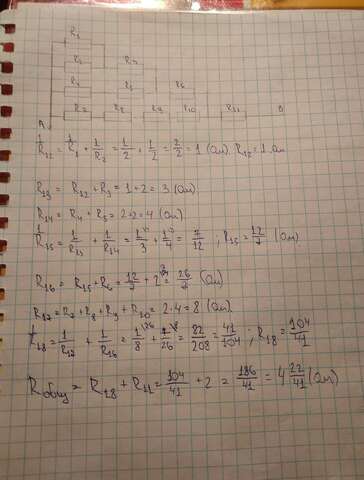 R1
R2 R3
R4 R5 R6
R7 R8 R9 R10 R11
A B
1/R12 = 1/R1 + 1/R2 = 1/2 + 1/2 = 2/2 = 1 (Ом) R12 = 1 Ом
R13 = R12 + R3 = 1 + 2 = 3 (Ом)
R14 = R4 + R5 = 2·2 = 4 (Ом)
1/R15 = 1/R13 + 1/R14 = 1/3 + 1/4 = 7/12 ; R15 = 12/7 (Ом)
R16 = R15 + R6 = 12/7 + 2 = 26/7 (Ом)
R17 = R7 + R8 + R9 + R10 = 2·4 = 8 (Ом)
1/R18 = 1/R17 + 1/R16 = 1/8 + 7/26 = 82/208 = 41/104 ; R18 = 104/41
Rобщ = R18 + R11 = 104/41 + 2 = 186/41 = 4 22/41 (Ом)